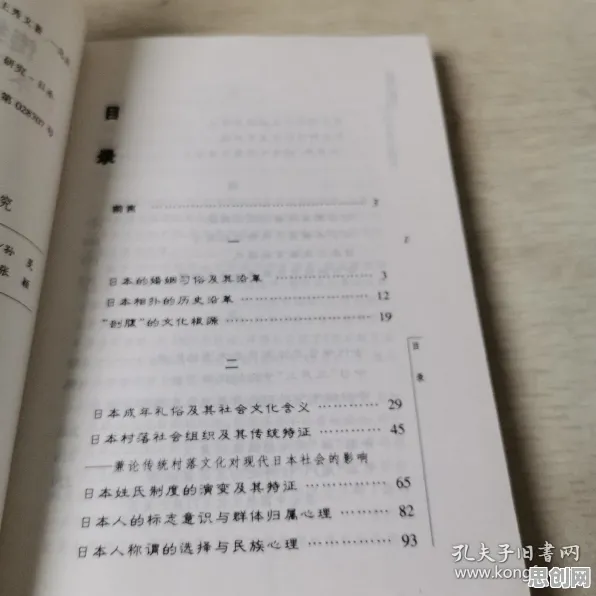 王秀文著
研究-日本
第 028707 号
究
孙昊
张颖
目
录
前言 ………………………… 1
一
日本的婚姻习俗及其沿革 ………………… 3
日本相扑的历史沿革 ………………… 12
“剖腹”的文化根源 ………………… 19
二
日本成年礼俗及其社会文化含义 ………… 29
日本村落社会组织及其传统特征 ………… 45
——兼论传统村落文化对现代日本社会的影响
日本姓氏制度的演变及其特征 ………… 65
日本人的标志意识与群体归属心理 ………… 82
日本人称谓的选择与民族心理 ………… 93
目
录
孔夫子旧书网
www.kong
思创网